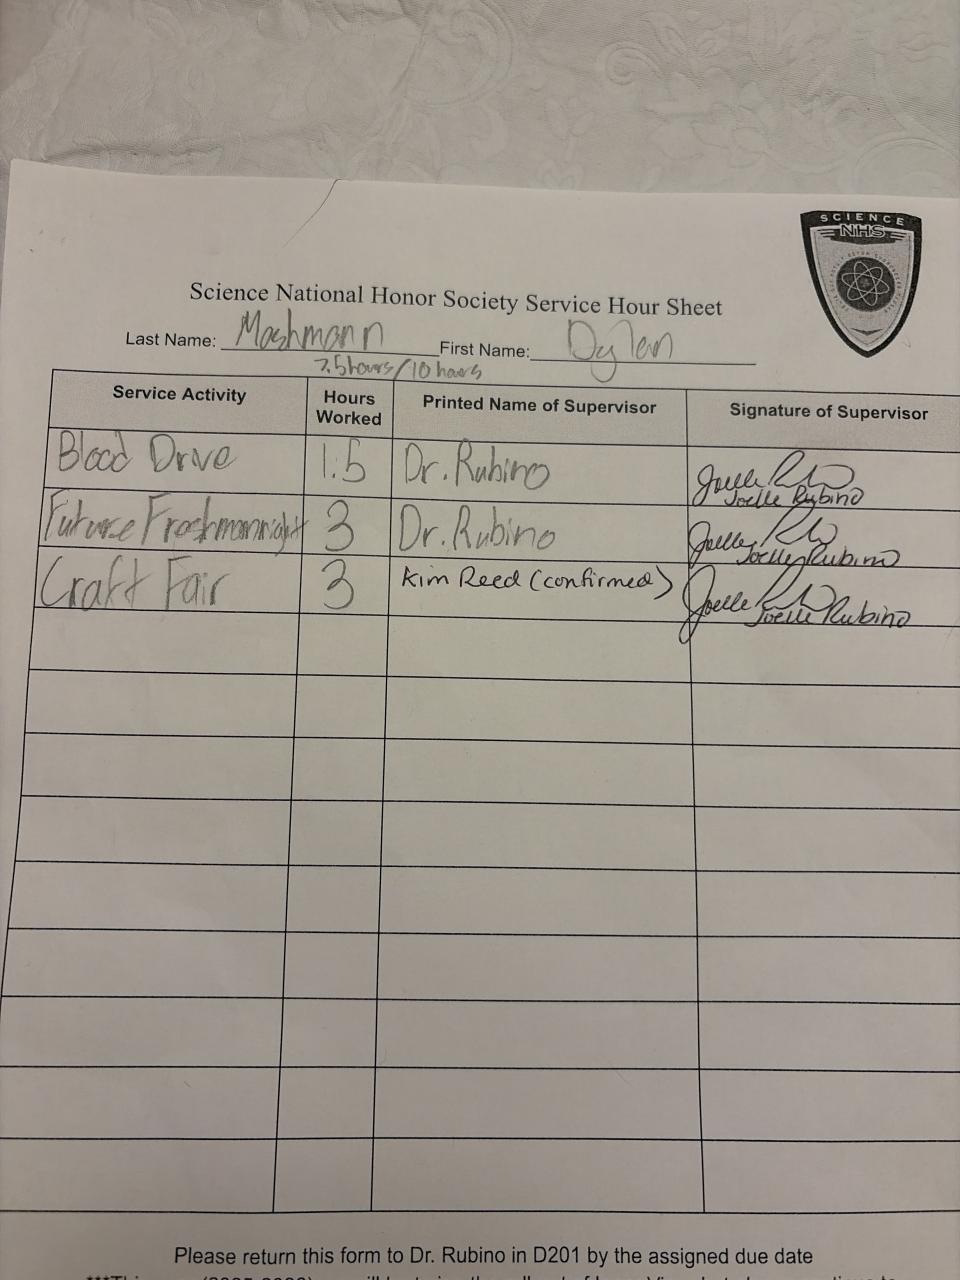 SCIENCE
NHS
Science National Honor Society Service Hour Sheet
Last Name: Moshmann First Name: Dylan
7.5 hours / 10 hours
Service Activity Hours Worked Printed Name of Supervisor Signature of Supervisor
Blood Drive 1.5 Dr. Rubino Joelle Rubino
Future Freshman night 3 Dr. Rubino Joelle Rubino
Craft Fair 3 Kim Reed (confirmed) Joelle Rubino
Please return this form to Dr. Rubino in D201 by the assigned due date